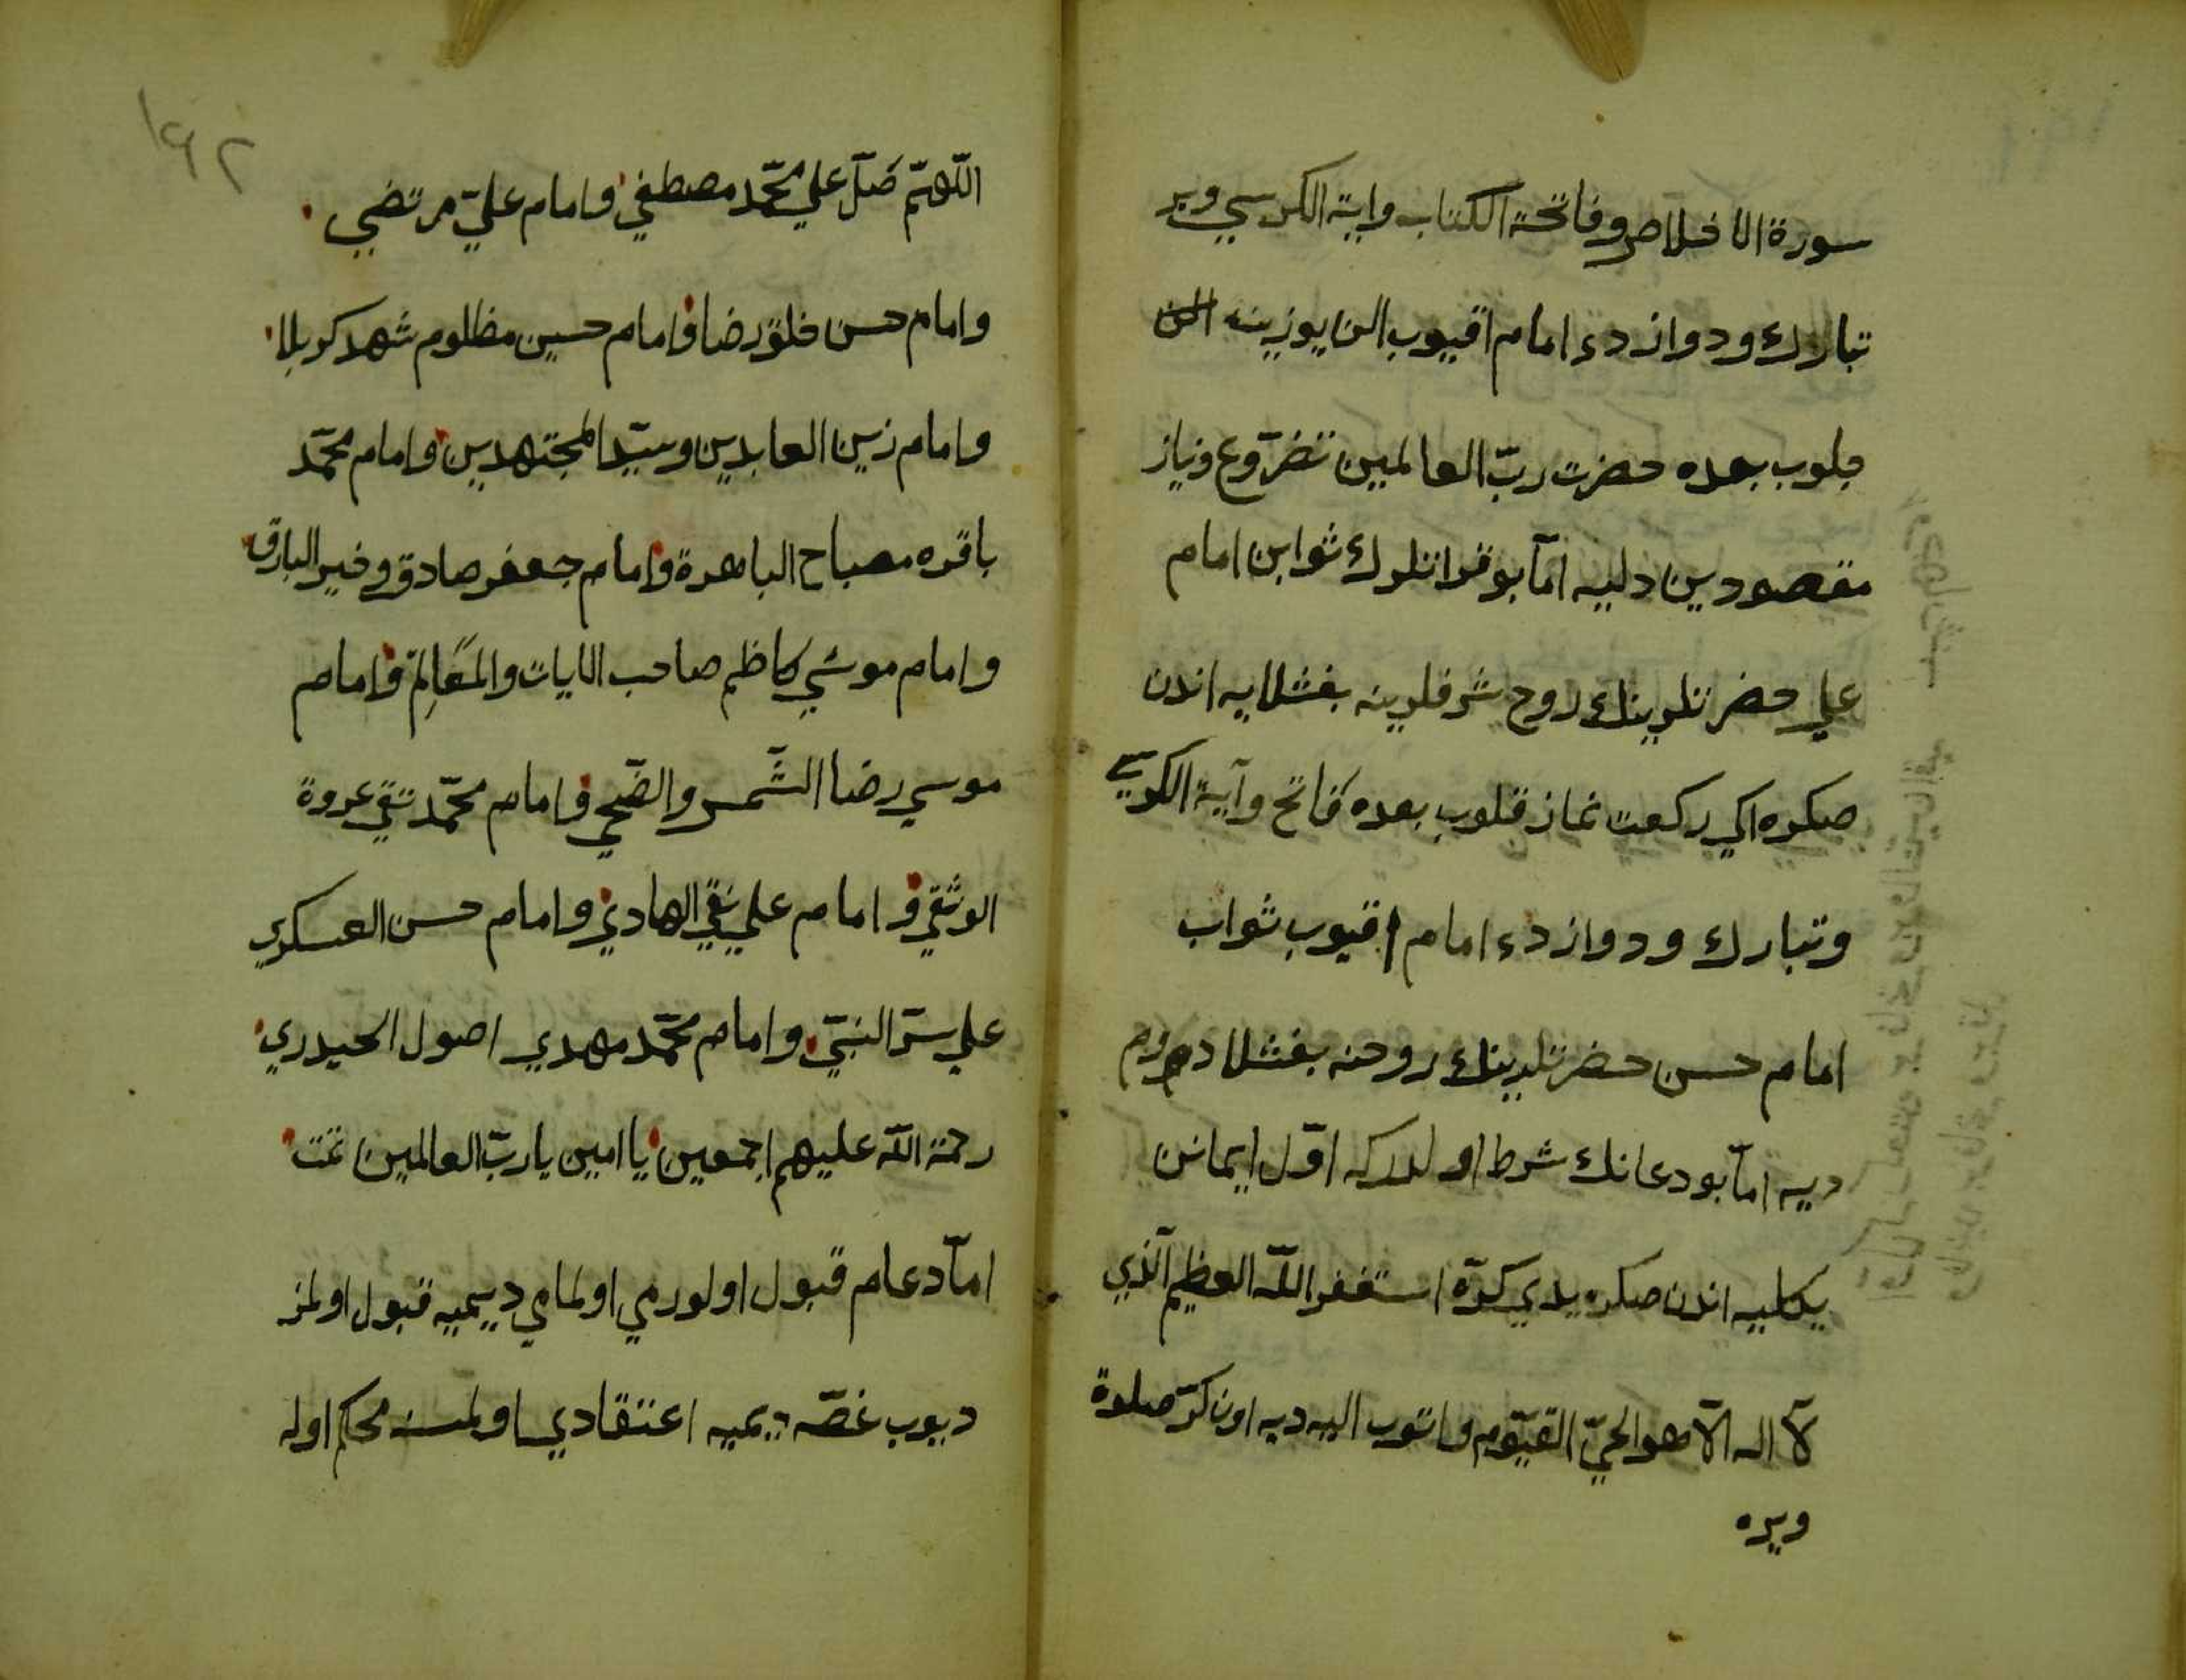 سورة الاخلاص وفاتحة الكتاب واية الكرسي وبر
تبارك ودوازدء امام اقيوب الن يوزينه
قلوب بعده حضرت ربّ العالمين تضرّوع ونياز
مقصودين دليه امّا بو قراتلرك ثوابن امام
علي حضرتلرينك روح شرفلرينه بغشلايه اندن
صكره اكي ركعت نماز قلوب بعده فاتح وآية الكرسي
وتبارك ودوازدء امام اقيوب ثواب
امام حسن حضرتلرينك روحنه بغشلادم
ديه امّا بو دعانك شرط اولدركه اوّل ايمانن
يكليه اندن صكره يدي كرّه استغفر اللّه العظيم الّذي
لآ اله الآ هو الحيّ القيّوم واتوب اليه ديه اون كرّ صلوة
ويره
١٩٢
اللّهمّ صَلّ علي محمّد مصطفي وامام عليّ مرتضي
وامام حسن خلق رضا وامام حسين مظلوم شهد كربلا
وامام زين العابدين وسيّد المجتهدين وامام محمّد
باقره مصباح الباهرة وامام جعفر صادق وخير البارق
وامام موسَي كاظم صاحب الايات والمَعَالِمْ وامام
موسي رضا الشّمس والضّحي وامام محمّد تقي عروة
الوثقي وامام علي نقي الهادي وامام حسن العسكري
علي سرّ النبيّ وامام محمّد مهدي اصول الحيدري
رحمة اللّه عليهم اجمعين يا امين يا ربّ العالمين تمّت
امّا دعام قبول اولورمي اولمامي ديميه قبول اولمز
ديوب غصّه ديميه اعتقادي اولمسنه محكم اوله